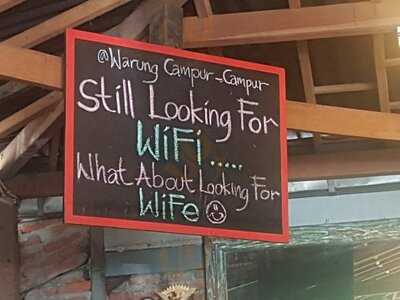 @Warung Campur-Campur
Still Looking For
WiFi.....
What About Looking For
WiFe